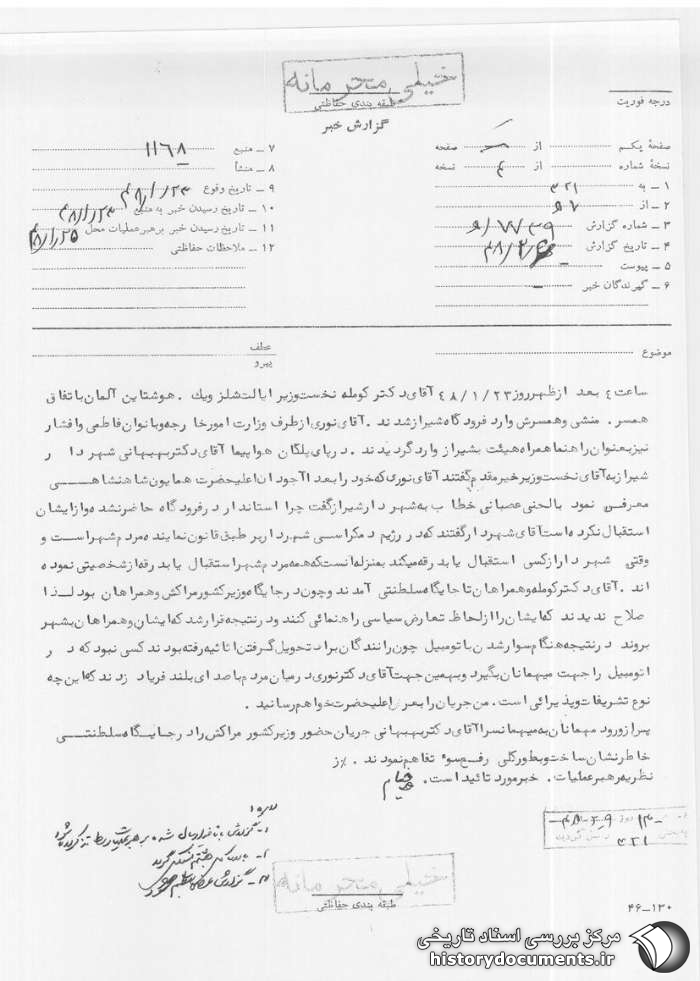 خیلی محرمانه
طبقه بندی حفاظتی
گزارش خبر
درجه فوریت
صفحهٔ یکم از صفحه
نسخهٔ شماره از ٤ نسخه
۱ ـ به ۳۲۱
۲ ـ از ه۷
۳ ـ شماره گزارش
۴ ـ تاریخ گزارش
۵ ـ پیوست
۶ ـ گیرندگان خبر
۷ ـ منبع ۱۱٦۸
۸ ـ منشأ
۹ ـ تاریخ وقوع ٤۸/۱/۲۳
۱۰ ـ تاریخ رسیدن خبر به منبع ٤۸/۱/۲۳
۱۱ ـ تاریخ رسیدن خبر برهبر عملیات محل ٤۸/۱/۲۵
۱۲ ـ ملاحظات حفاظتی
موضوع
عطف
پیرو
ساعت ٤ بعد ازظهرروز ٤۸/۱/۲۳ آقای دکتر کومله نخست‌وزیر ایالت شلزویک . هوشتاین آلمان باتفاق
همسر . منشی وهمسرش وارد فرودگاه شیراز شدند . آقای نوری ازطرف وزارت امورخارجه وبانوان فاطمی وافشار
نیزبعنوان راهنما همراه هیئت بشیراز وارد گردیدند . درپای پلکان هواپیما آقای دکتربهبهانی شهردار
شیرازبه آقای نخست‌وزیرخیرمقدم گفتند آقای نوری که خود را بعدا آجودان اعلیحضرت همایون شاهنشاهی
معرفی نمود بالحنی عصبانی خطاب به شهردارشیراز گفت چرا استاندار درفرودگاه حاضرنشده وازایشان
استقبال نکرده است آقای شهردار گفتند که در رژیم دمکراسی شهرداربرطبق قانون نماینده مردم شهراست و
وقتی شهردار ازکسی استقبال یا بدرقه میکند بمنزله آنست که همه مردم شهراستقبال یا بدرقه ازشخصیتی نموده
اند . آقای دکتر کومله وهمراهان تا جایگاه سلطنتی آمدند وچون درجایگاه وزیر کشورمراکش وهمراهان بود لذا
صلاح ندیدند که ایشان را ازلحاظ تعارض سیاسی راهنمائی کنند ودرنتیجه قرارشد که ایشان وهمراهان بشهر
بروند درنتیجه هنگام سوارشدن باتومبیل چون رانندگان برای تحویل گرفتن اثاثیه رفته بودند کسی نبود که در
اتومبیل را جهت میهمانان بگیرد وبهمین جهت آقای دکترنوری درمیان مردم باصدای بلند فریاد زدند که این چه
نوع تشریفات وپذیرائی است . من جریان را بعرض اعلیحضرت خواهم رسانید .
پس ازورود میهمانان به میهمانسرا آقای دکتربهبهانی جریان حضور وزیر کشور مراکش را درجایگاه سلطنتی
خاطرنشان ساخت وبطورکلی رفع سوء تفاهم نمودند .
نظریه رهبرعملیات . خبرمورد تائید است .
۳۲۱
خیلی محرمانه
طبقه بندی حفاظتی
۴۶ـ۱۳۰
مرکز بررسی اسناد تاریخی
historydocuments.ir